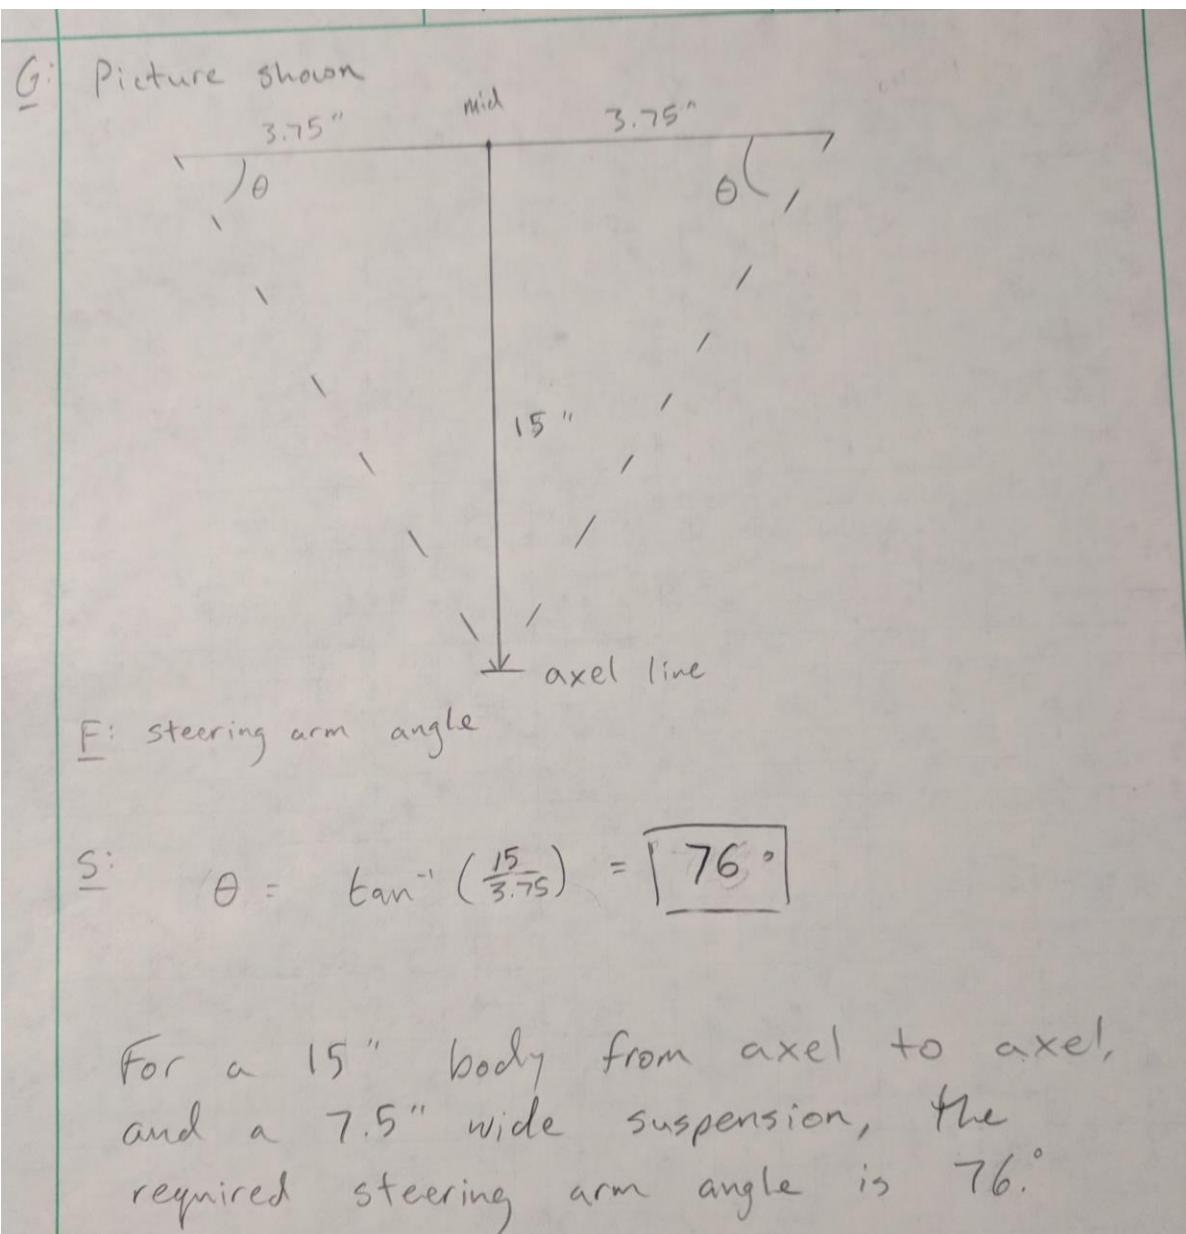 G: Picture shown
mid
3.75" 3.75"
θ θ
15"
axel line
F: steering arm angle
S: θ = tan⁻¹ (15/3.75) = 76°
For a 15" body from axel to axel,
and a 7.5" wide suspension, the
required steering arm angle is 76.°